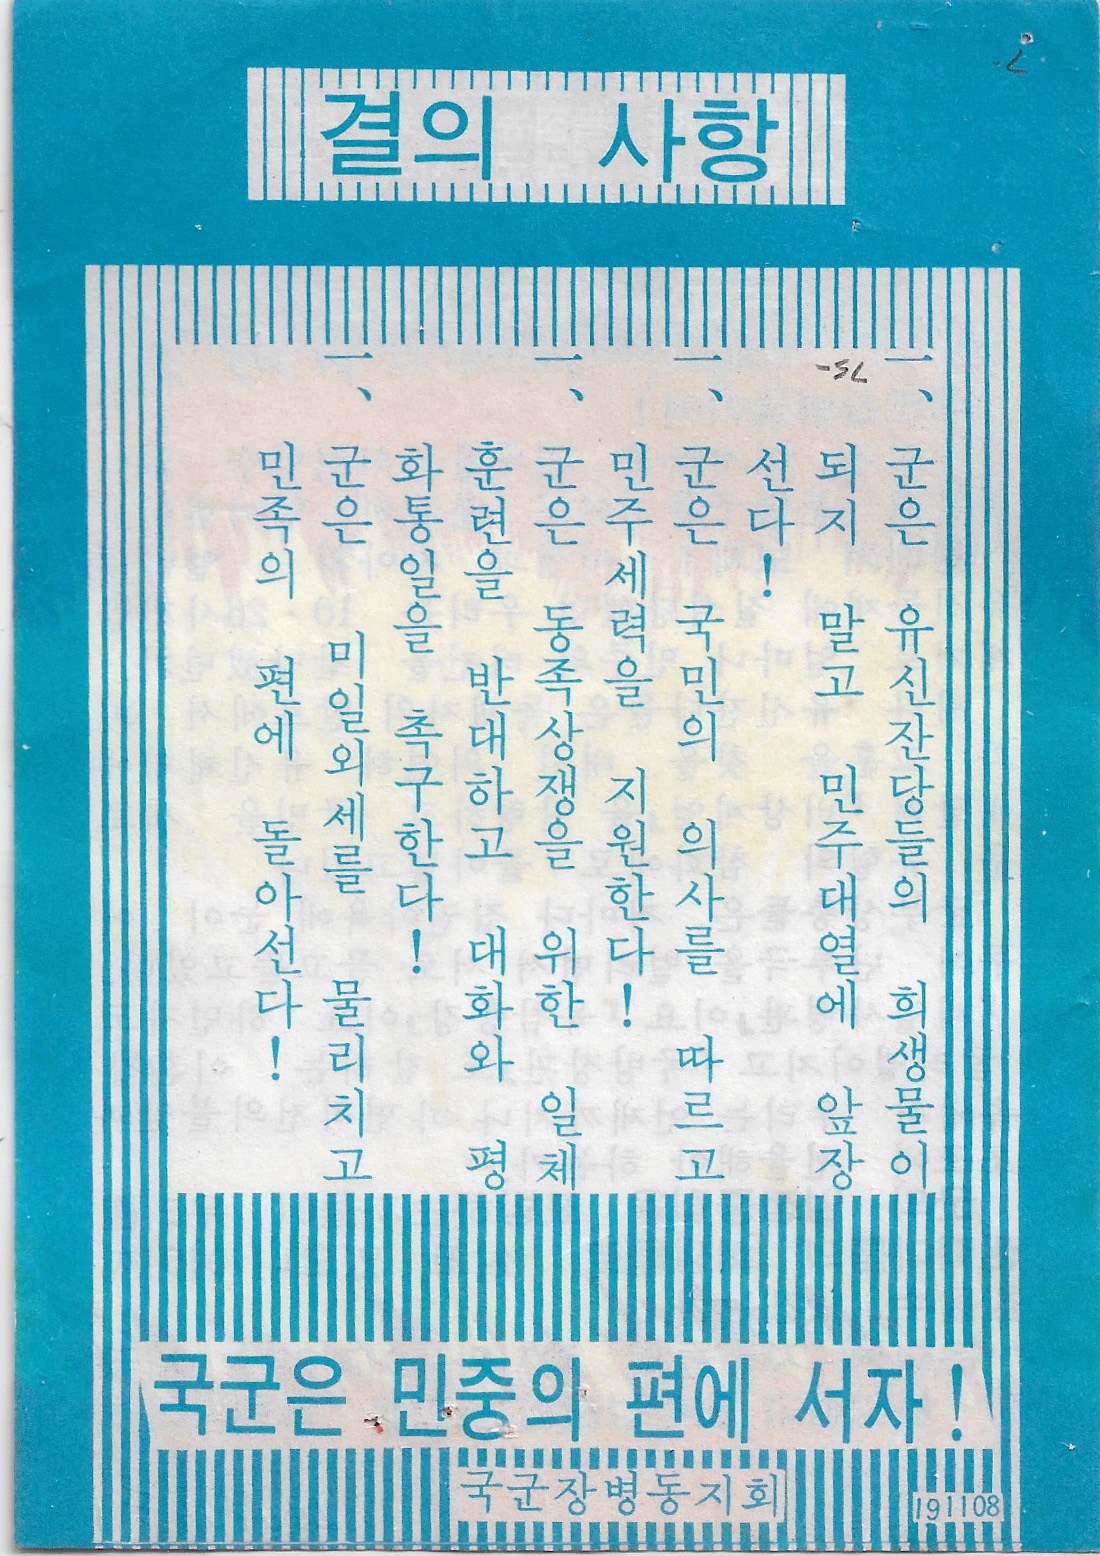 결의 사항
一、 군은 유신잔당들의 희생물이
되지 말고 민주대열에 앞장
선다!
一、 군은 국민의 의사를 따르고
민주세력을 지원한다!
一、 군은 동족상쟁을 위한 일체
훈련을 반대하고 대화와 평
화통일을 촉구한다!
一、 군은 미일외세를 물리치고
민족의 편에 돌아선다!
국군은 민중의 편에 서자!
국군장병동지회
191108